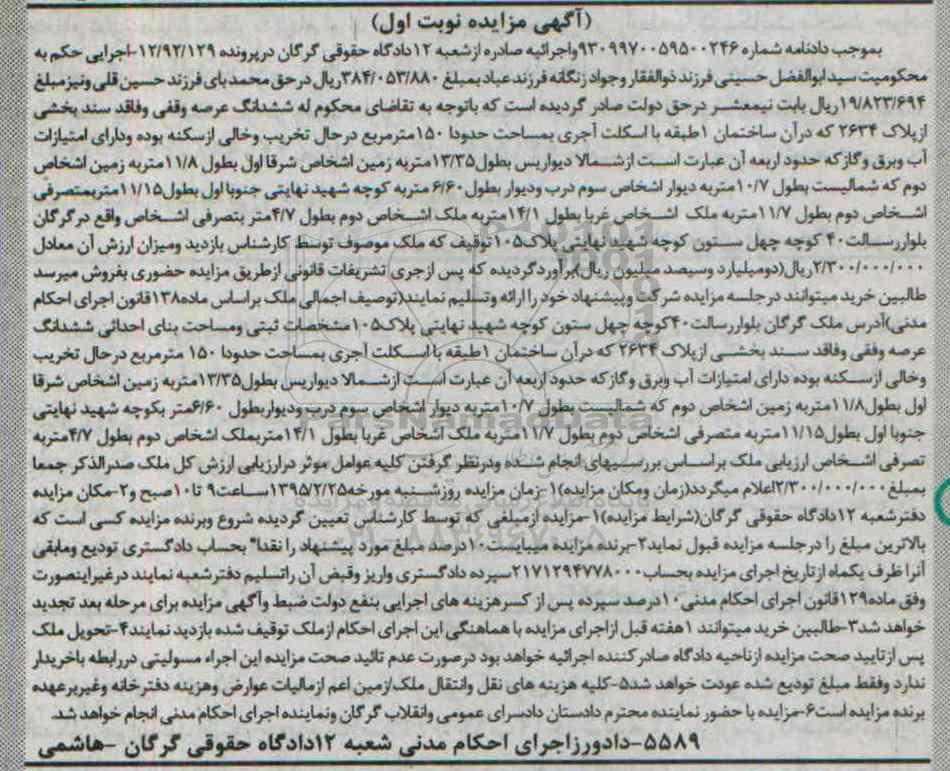 (آگهی مزایده نوبت اول)
بموجب دادنامه شماره ۹۳۰۹۹۷۰۰۵۹۵۰۰۲۴۶واجرائیه صادره ازشعبه ۱۲دادگاه حقوقی گرگان درپرونده ۱۲/۹۲/۱۲۹-اجرایی حکم به
محکومیت سیدابوالفضل حسینی فرزند ذوالفقار وجواد زنگانه فرزند عباد بمبلغ ۳۸۴/۰۵۳/۸۸۰ریال درحق محمد بای فرزند حسین قلی ونیزمبلغ
۱۹/۸۲۳/۶۹۴ریال بابت نیمعشر درحق دولت صادر گردیده است که باتوجه به تقاضای محکوم له ششدانگ عرصه وقفی وفاقد سند بخشی
ازپلاک ۲۶۳۴ که درآن ساختمان ۱طبقه با اسکلت آجری بمساحت حدودا ۱۵۰مترمربع درحال تخریب وخالی ازسکنه بوده ودارای امتیازات
آب وبرق وگازکه حدود اربعه آن عبارت است ازشمالا دیواریس بطول۱۳/۳۵متربه زمین اشخاص شرقا اول بطول ۱۱/۸متربه زمین اشخاص
دوم که شمالیست بطول ۱۰/۷متربه دیوار اشخاص سوم درب ودیوار بطول ۶/۶۰ متربه کوچه شهید نهایتی جنوبا اول بطول۱۱/۱۵متربمتصرفی
اشخاص دوم بطول ۱۱/۷متربه ملک اشخاص غربا بطول ۱۴/۱متربه ملک اشخاص دوم بطول ۴/۷متر بتصرفی اشخاص واقع درگرگان
بلواررسالت۴۰ کوچه چهل ستون کوچه شهید نهایتی پلاک۱۰۵توقیف که ملک موصوف توسط کارشناس بازدید ومیزان ارزش آن معادل
۲/۳۰۰/۰۰۰/۰۰۰ریال(دومیلیارد وسیصد میلیون ریال)برآوردگردیده که پس ازجری تشریفات قانونی ازطریق مزایده حضوری بفروش میرسد
طالبین خرید میتوانند درجلسه مزایده شرکت وپیشنهاد خود را ارائه وتسلیم نمایند(توصیف اجمالی ملک براساس ماده۱۳۸قانون اجرای احکام
مدنی)آدرس ملک گرگان بلواررسالت۴۰کوچه چهل ستون کوچه شهید نهایتی پلاک۱۰۵مشخصات ثبتی ومساحت بنای احداثی ششدانگ
عرصه وقفی وفاقد سند بخشی ازپلاک ۲۶۳۴ که درآن ساختمان ۱طبقه با اسکلت آجری بمساحت حدودا ۱۵۰ مترمربع درحال تخریب
وخالی ازسکنه بوده دارای امتیازات آب وبرق وگازکه حدود اربعه آن عبارت است ازشمالا دیواریس بطول۱۳/۳۵متربه زمین اشخاص شرقا
اول بطول۱۱/۸متربه زمین اشخاص دوم که شمالیست بطول ۱۰/۷متربه دیوار اشخاص سوم درب ودیواربطول ۶/۶۰متر بکوچه شهید نهایتی
جنوبا اول بطول۱۱/۱۵متربه متصرفی اشخاص دوم بطول ۱۱/۷متربه ملک اشخاص غربا بطول ۱۴/۱متربملک اشخاص دوم بطول ۴/۷متربه
تصرفی اشخاص ارزیابی ملک براساس بررسیهای انجام شده ودرنظر گرفتن کلیه عوامل موثر درارزیابی ارزش کل ملک صدرالذکر جمعا
بمبلغ۲/۳۰۰/۰۰۰/۰۰۰اعلام میگردد(زمان ومکان مزایده)۱-زمان مزایده روزشنبه مورخه۱۳۹۵/۲/۲۵ساعت۹ تا۱۰صبح و۲-مکان مزایده
دفترشعبه ۱۲دادگاه حقوقی گرگان(شرایط مزایده)۱-مزایده ازمبلغی که توسط کارشناس تعیین گردیده شروع وبرنده مزایده کسی است که
بالاترین مبلغ را درجلسه مزایده قبول نماید۲-برنده مزایده میبایست۱۰درصد مبلغ مورد پیشنهاد را نقدا" بحساب دادگستری تودیع ومابقی
آنرا ظرف یکماه ازتاریخ اجرای مزایده بحساب۲۱۷۱۲۹۴۷۷۸۰۰۰سپرده دادگستری واریز وقبض آن راتسلیم دفترشعبه نمایند درغیراینصورت
وفق ماده۱۲۹قانون اجرای احکام مدنی۱۰درصد سپرده پس از کسرهزینه های اجرایی بنفع دولت ضبط وآگهی مزایده برای مرحله بعد تجدید
خواهد شد۳-طالبین خرید میتوانند ۱هفته قبل ازاجرای مزایده با هماهنگی این اجرای احکام ازملک توقیف شده بازدید نمایند۴-تحویل ملک
پس ازتایید صحت مزایده ازناحیه دادگاه صادرکننده اجرائیه خواهد بود درصورت عدم تائید صحت مزایده این اجراء مسولیتی دررابطه باخریدار
ندارد وفقط مبلغ تودیع شده عودت خواهد شد۵-کلیه هزینه های نقل وانتقال ملک ازمین اعم ازمالیات عوارض وهزینه دفترخانه وغیربرعهده
برنده مزایده است۶-مزایده با حضور نماینده محترم دادستان دادسرای عمومی وانقلاب گرگان ونماینده اجرای احکام مدنی انجام خواهد شد.
۵۵۸۹-دادورزاجرای احکام مدنی شعبه ۱۲دادگاه حقوقی گرگان -هاشمی
ParsNamadData
۰۲۱-۸۸۳۴۹۶۷۰-۵